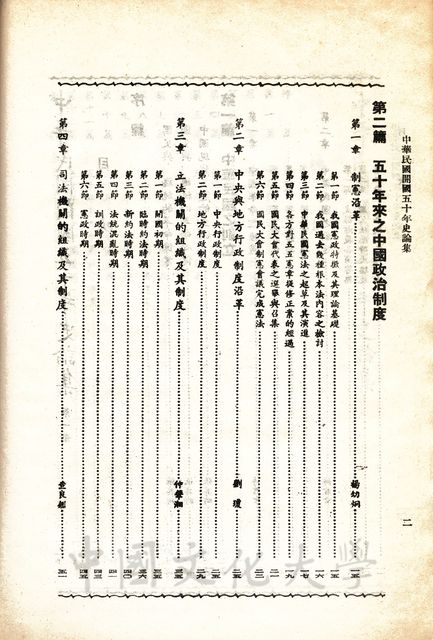 中華民國開國五十年史論集
二
第二篇　五十年來之中國政治制度
第一章　制憲沿革……楊幼炯……一五
第一節　我國憲政特質及其理論基礎……一五
第二節　我國過去幾種根本法內容之檢討……一六
第三節　中華民國憲法之起草及其演進……一七
第四節　各方對五五憲草提修正業的經過……一九
第五節　國民大會代表之選舉與召集……二二
第六節　國民大會制憲會議完成憲法……二三
第二章　中央與地方行政制度沿革……劉瓊……二五
第一節　中央行政制度……二五
第二節　地方行政制度……二九
第三章　立法機關的組織及其制度……仲肇湘……三五
第一節　開國初期……三五
第二節　臨時約法時期……三六
第三節　新約法時期……四〇
第四節　法統混亂時期……四一
第五節　訓政時期……四三
第六節　憲政時期……四五
第四章　司法機關的組織及其制度……查良鑑……五一
中國文化大學